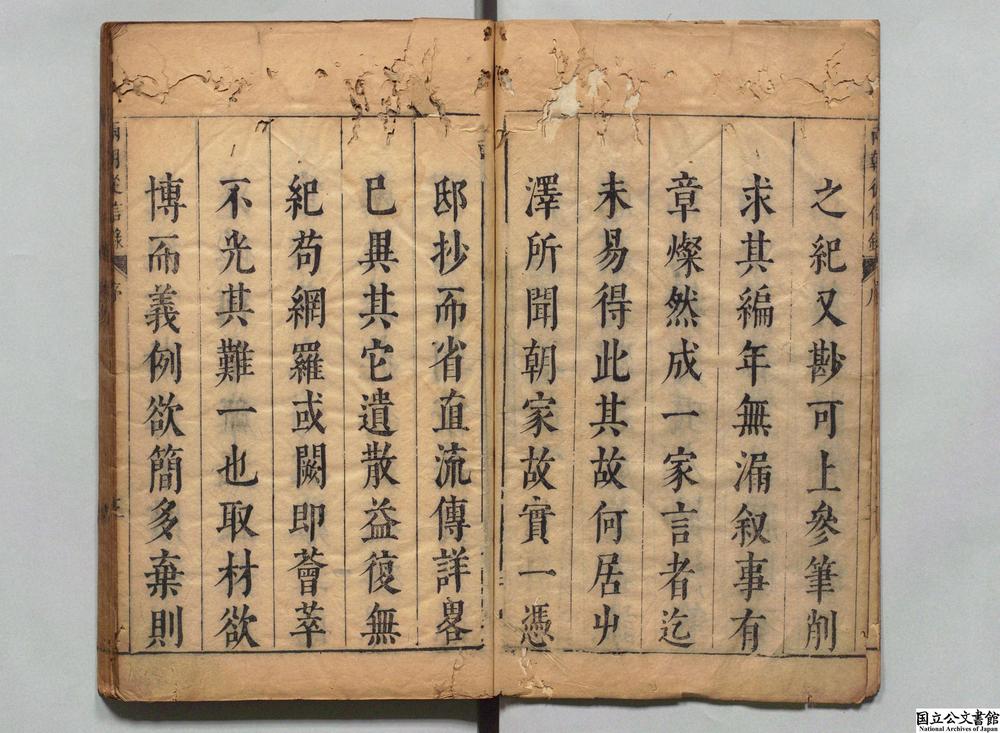 之紀又尠可上參筆削
求其編年無漏叙事有
章燦然成一家言者迄
未易得此其故何居屮
澤所聞朝家故實一憑
邸抄而省直流傳詳畧
已異其它遺散益復無
紀苟網羅或闕即薈萃
不光其難一也取材欲
博而義例欲簡多棄則
兩朝從信錄
序
国立公文書館
National Archives of Japan